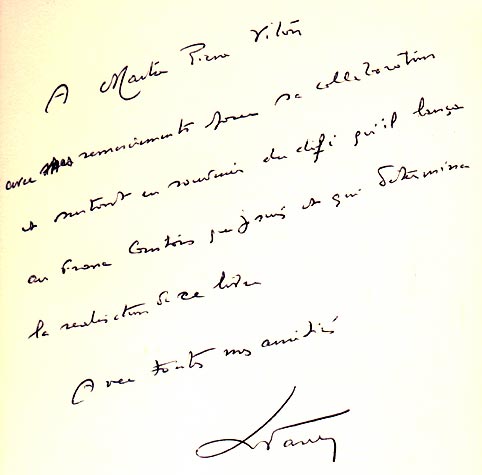 A Maître Pierre Vitón
avec mes remerciements pour sa collaboration
et surtout en souvenir du défi qu'il lança
au Franc Comtois que je suis et qui détermina
la réalisation de ce livre
Avec toutes mes amitiés